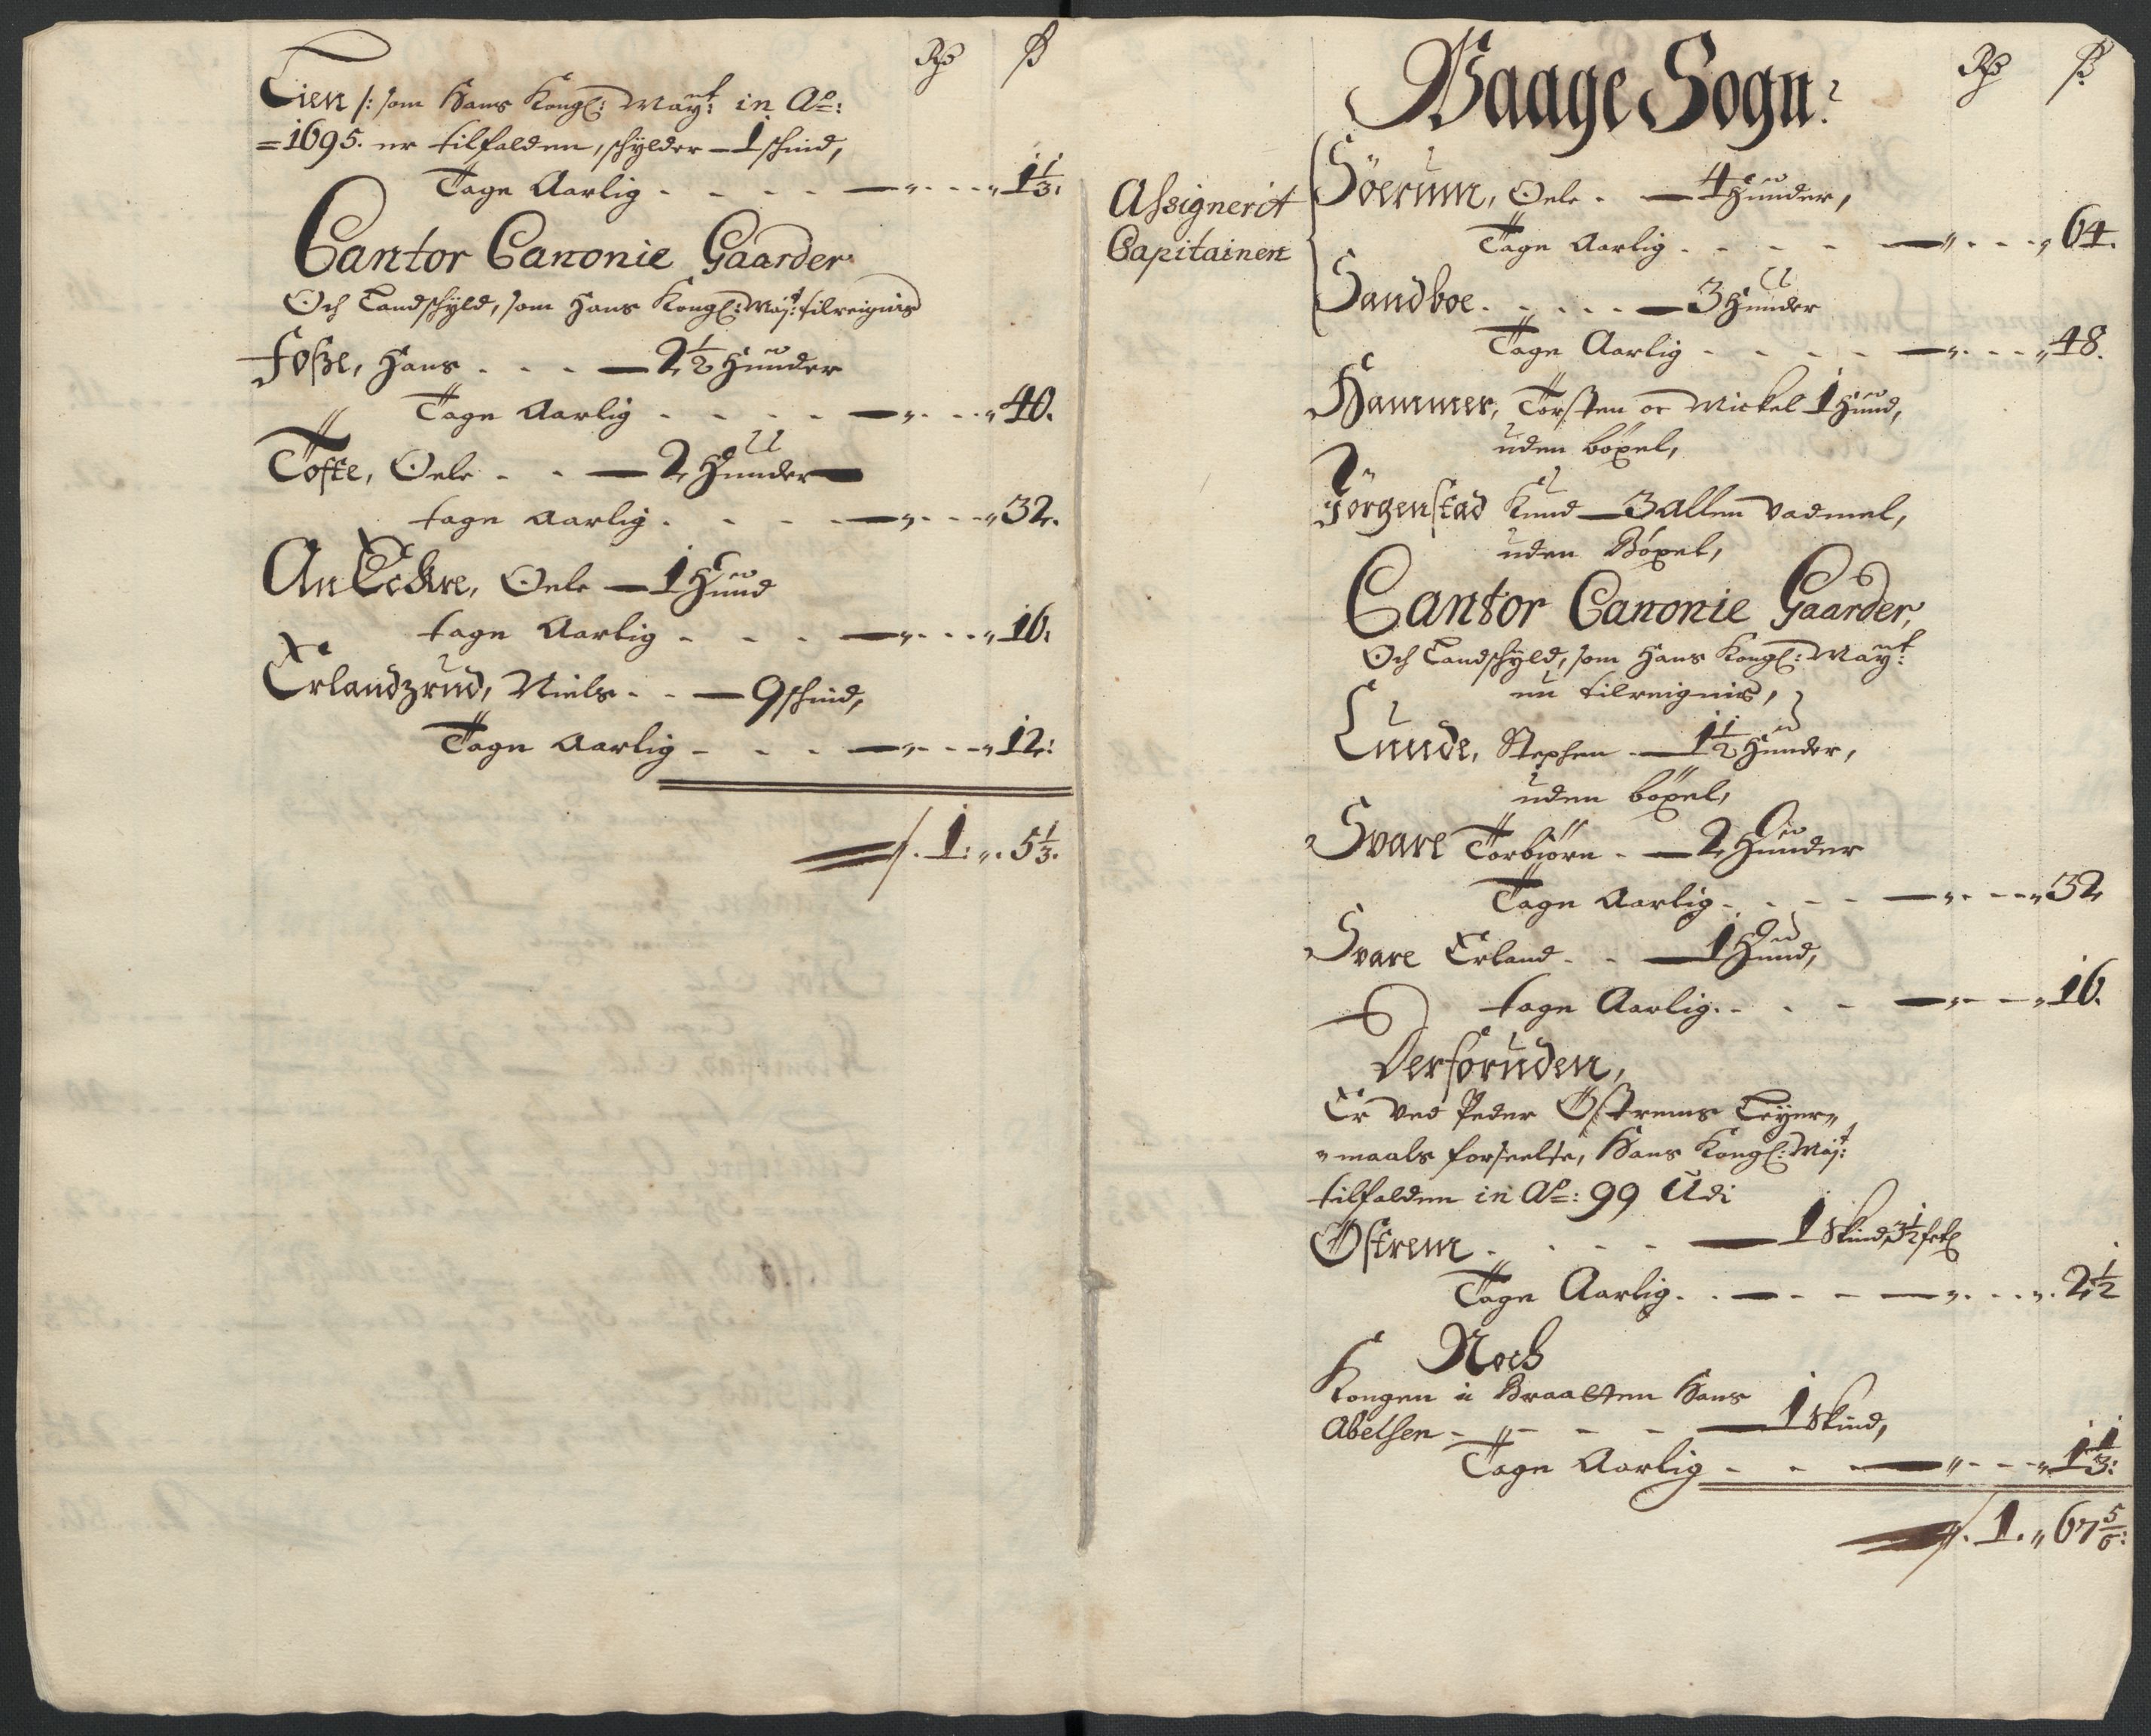 Rß ß
Tien /: som Hans Kongl: Maytt: in Ao:
=1695. er tilfalden, schylder — 1 schind,
Tage Aarlig - - - - — „ - - - „ 1 1/3:
Cantor Canonie Gaarder
Och Landschyld, som Hans Kongl: Majt: tilreignis
Foße, Hans . . . — 2 1/2 Hunder
Tage Aarlig - - - - — „ - - - „ 40.
Tofte, Oele - - — 2 Hunder —
tage aarlig . - - - — „ - - - „ 32.
An Eckre, Oele — 1 Hund
tage Aarlig - - - — „ - - - „ 16.
Erlandzrud, Niels - - — 9 schind,
Tage Aarlig - - - — „ - - - „ 12:
/. 1: „. 5 1/3.
Waage Sogn:
Rß ß
Assignerit
Capitainen
Söerum, Oele . — 4 Hunder,
Tage Aarlig . - - - — „ . - - „ 64.
Sandboe . . . . . — 3 Hunder
Tage Aarlig - - - - — „ . - - „ 48.
Hammer, Torsten oc Mickel 1 Hund,
uden böxel,
Jörgenstad Knud — 3 allen vadmel,
uden Böxel,
Cantor Canonie Gaarder,
Och Landschyld, som Hans Kongl: Maytt:
nu tilreignis,
Lunde, Stephen . — 1 1/2 Hunder,
uden böxel,
Svare Torbiörn . — 2 Hunder
Tage Aarlig - . - - — „ . - - „ 32
Svare Erland - - — 1 Hund,
tage Aarlig . - . - — „ - - „ 16.
Derforuden,
Er ved Peder Östrems Leyer„
„maals forseelse, Hans Kongl: Majt:
tilfalden in Ao: 99 Udi
Östrem . . - - — 1 Skind, 3 1/2
Tage Aarlig . . — - - — „ . . - „ . 2 1/2
Noch
Kongen i Braatten Hans
Abelsen - „ - - - — 1 Skind,
Tage Aarlig - - — „ - - - „ 1 1/3:
/. 1. „ 67 5/6: